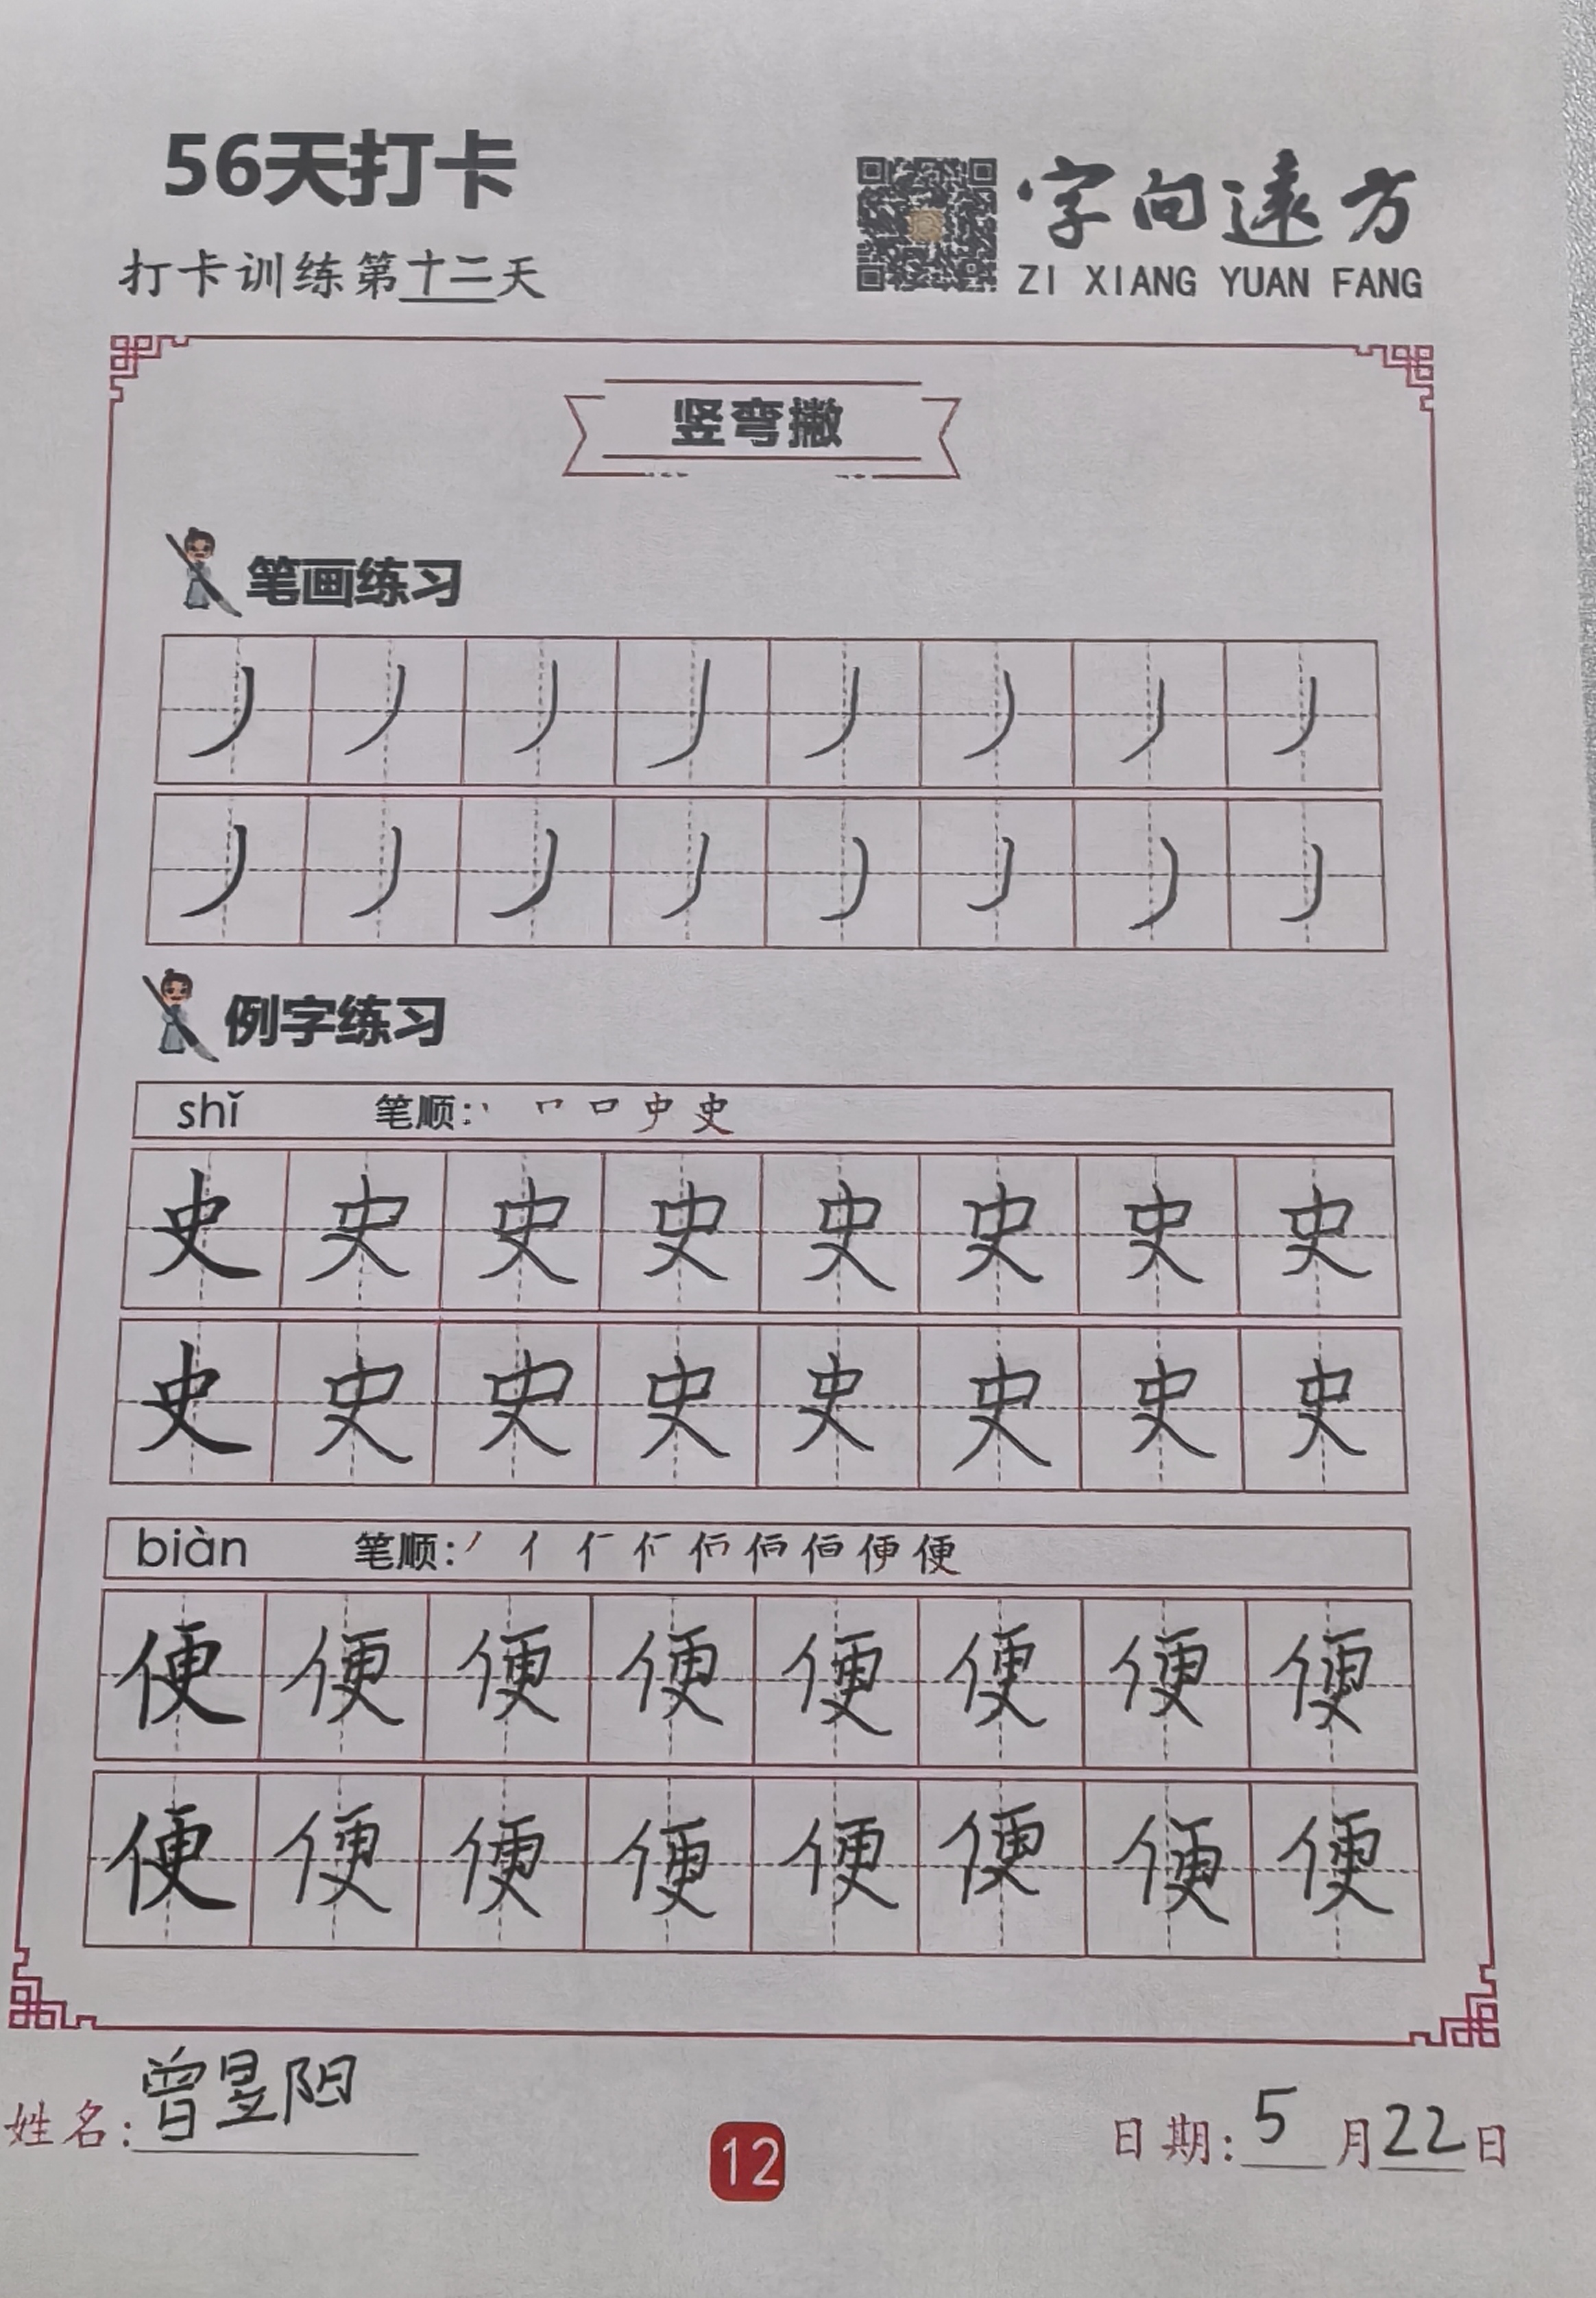 56天打卡
字向遠方
打卡训练第十二天
ZI XIANG YUAN FANG
竖弯撇
笔画练习
丿丿丿丿丿丿丿丿
丿丿丿丿丿丿丿丿
例字练习
shǐ 笔顺:
史史史史史史史史
史史史史史史史史
biàn 笔顺:
便便便便便便便便
便便便便便便便便
姓名:曾昱阳
12
日期:5月22日